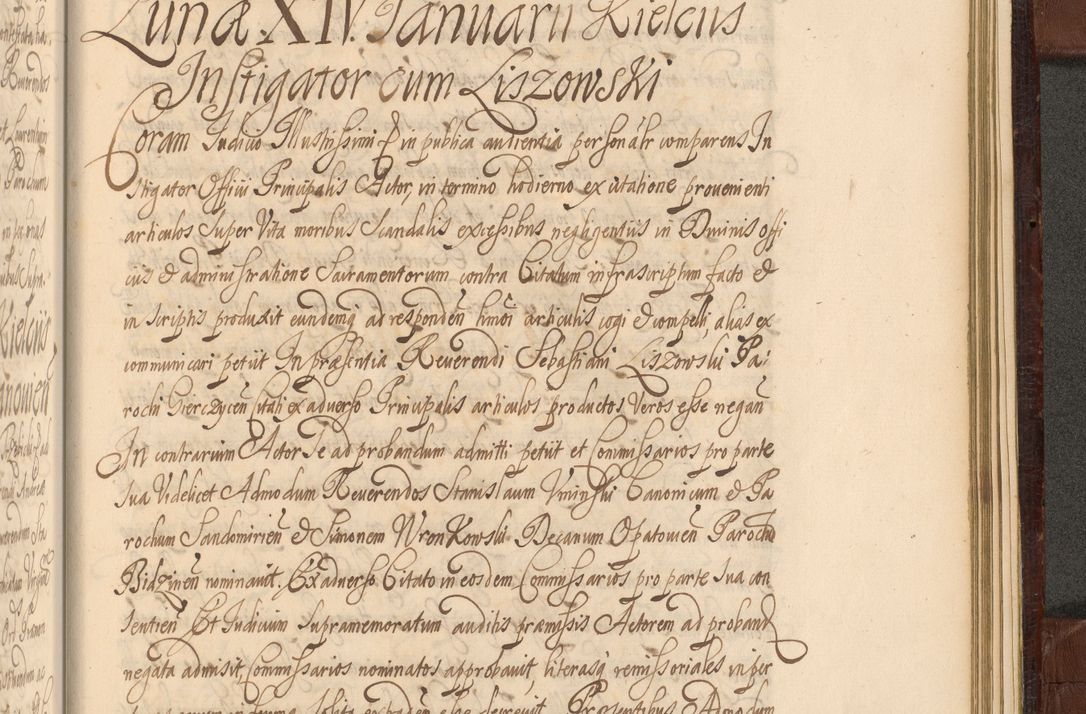 Lunæ XIV. Ianuarii Kielciis
Instigator cum Liszowski
Coram Iudicio Illustrissimi & in publica audientia personalr comparens In
stigator Officii Principalis Actor, in termino hodierno ex citatione provenienti
articulos super Vita moribus Scandalis excessibus negligentiis in Divinis offi
ciis & administratione Sacramentorum contra Citatum infrascriptum facto &
in scriptis produxit eundemq ad responden hmoi articulis cogi & compelli, alias ex
communicari petiit In præsentia Reverendi Sebastiani Liszowski Pa:
rochi Gierczycen Citati ex adverso Principalis articulos productos Veros esse negan
In contrarium Actor se ad probandum admitti petiit et Commissarios pro parte
sua Videlicet Admodum Reverendos Stanislaum Uminski Canonicum & Pa
rochum Sandomirien & Simonem Wronkowski Decanum Opatovien Parochu
Bidzinen nominavit, Ex adverso Citato in eosdem Commissarios pro parte sua con
sentien Et Iudicium supramemoratum auditis præmissis Actorem ad proband
negata admisit, Commissarios nominatos approbavit, literasq remissoriales in per
solita esse decrevit Præsentibus Admodum